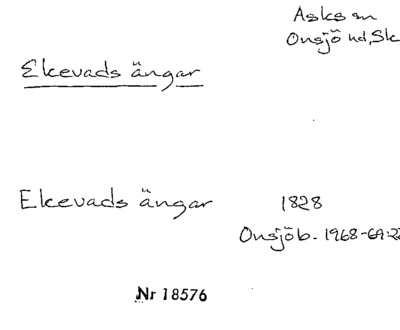 Asks sn
Onsjö hd, Sk
Ekevads ängar
Ekevads ängar 1828
Onsjöb. 1968-69:22
Nr 18576